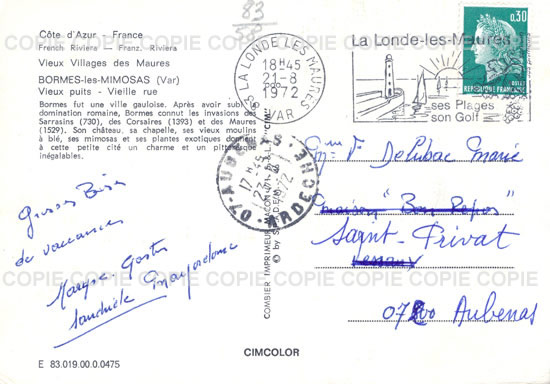 83
Côte d'Azur France
French Riviera — Franz. Riviera
Vieux Villages des Maures
BORMES-les-MIMOSAS (Var)
Vieux puits - Vieille rue
Bormes fut une ville gauloise. Après avoir subi
domination romaine, Bormes connut les invasions des
Sarrasins (730), des Corsaires (1393) et des Maures
(1529). Son château, sa chapelle, ses vieux moulins
à blé, ses mimosas et ses plantes exotiques donnent
à cette petite cité un charme et un pittoresque
inégalables.
83 LA LONDE LES MAURES
18H45
21-8
1972
VAR
La Londe-les-Maures
ses Plages
son Golf
0,30
REPUBLIQUE FRANÇAISE
POSTES
07-AUBENAS
17H45
1972
ARDECHE
COMBIER IMPRIMEUR MACON
Delubac Marie
Maison "Bon Repos"
Saint-Privat
07200 Aubenas
Grosses Bises
de vacances
E 83.019.00.0.0475
CIMCOLOR
COPIE COPIE COPIE COPIE COPIE COPIE